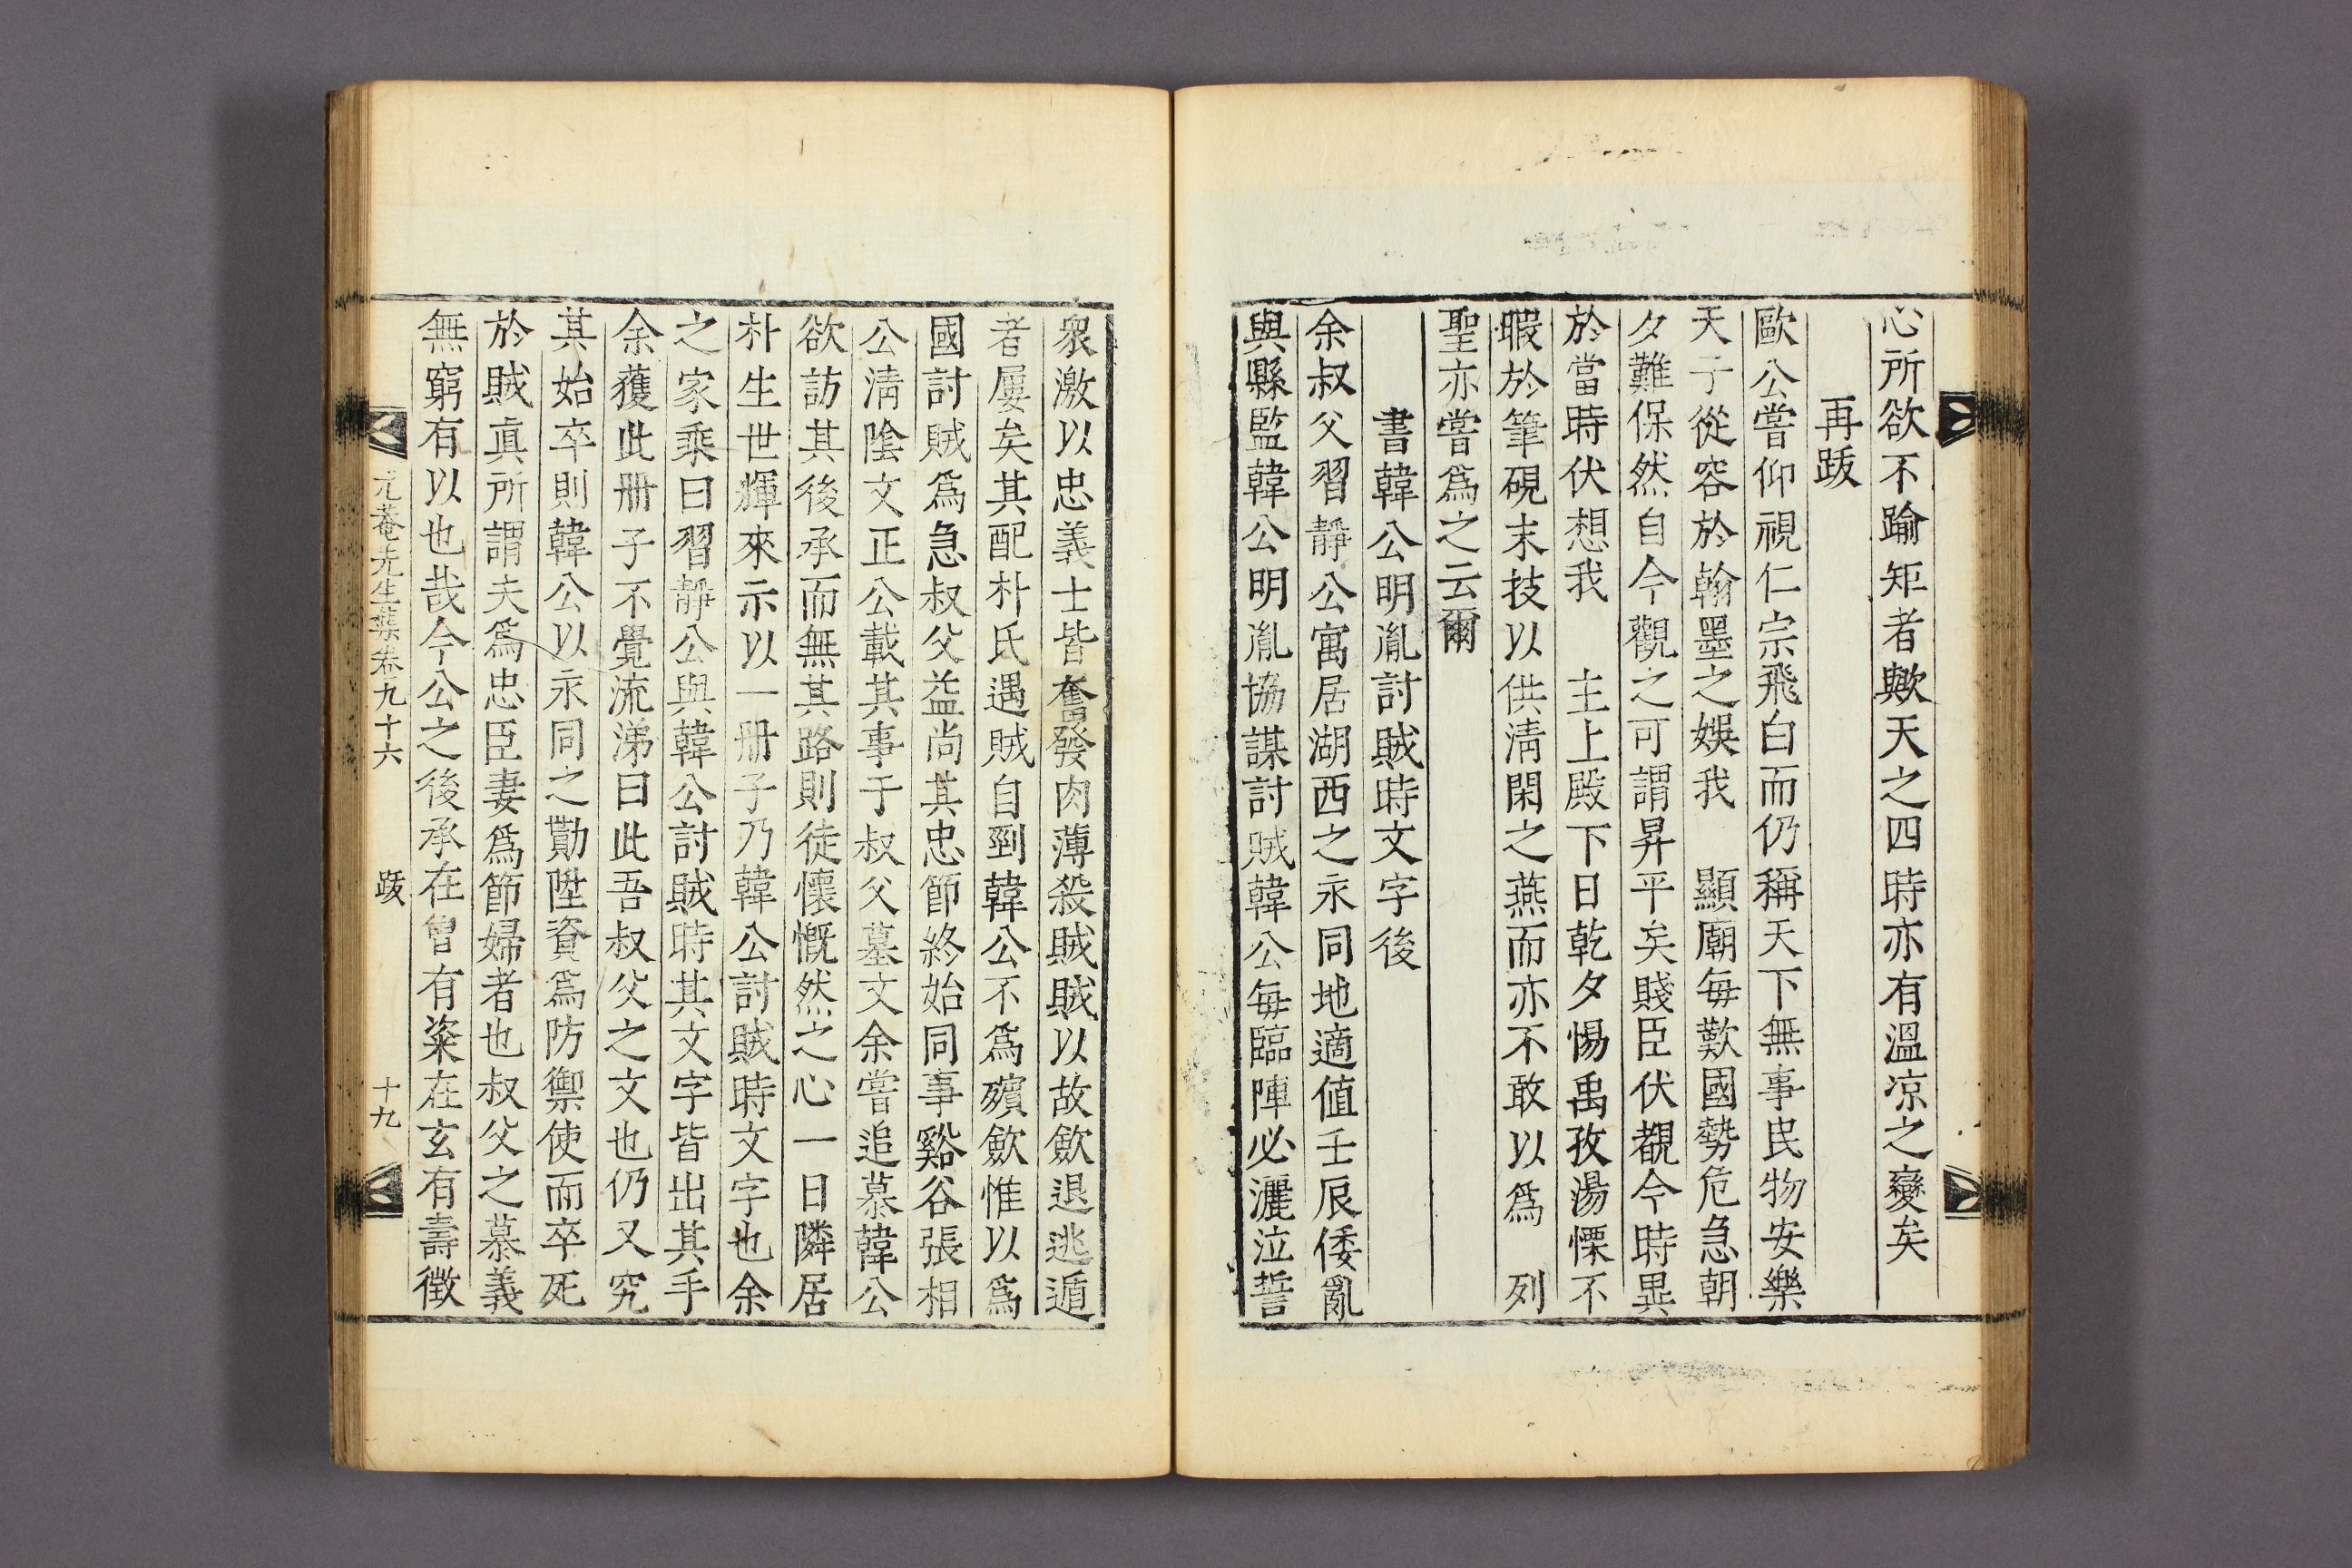 心所欲不踰矩者歟天之四時亦有溫凉之變矣
再跋
歐公嘗仰視仁宗飛白而仍稱天下無事民物安樂
天子從容於翰墨之娛我 顯廟每歎國勢危急朝
夕難保然自今觀之可謂昇平矣賤臣伏覩今時異
於當時伏想我 主上殿下日乾夕惕禹孜湯慄不
暇於筆硯末技以供淸閑之燕而亦不敢以爲 列
聖亦嘗爲之云爾
書韓公明胤討賊時文字後
余叔父習靜公寓居湖西之永同地適値壬辰倭亂
與縣監韓公明胤協謀討賊韓公每臨陣必灑泣誓
衆激以忠義士皆奮發肉薄殺賊賊以故歛退逃遁
者屢矣其配朴氏遇賊自剄韓公不爲殯歛惟以爲
國討賊爲急叔父益尙其忠節終始同事谿谷張相
公淸陰文正公載其事于叔父墓文余嘗追慕韓公
欲訪其後承而無其路則徒懷慨然之心一日隣居
朴生世輝來示以一册子乃韓公討賊時文字也余
之家乘曰習靜公與韓公討賊時其文字皆出其手
余獲此册子不覺流涕曰此吾叔父之文也仍又究
其始卒則韓公以永同之勩陞資爲防禦使而卒死
於賊眞所謂夫爲忠臣妻爲節婦者也叔父之慕義
無窮有以也哉今公之後承在曾有粢在玄有壽徵
尤菴先生集卷九十六 跋 十九